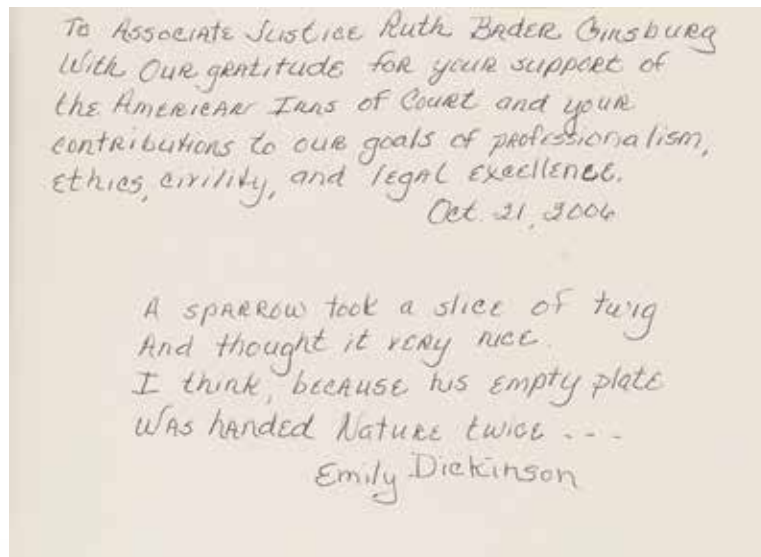 To Associate Justice Ruth Bader Ginsburg
With our gratitude for your support of
the American Inns of Court and your
contributions to our goals of professionalism,
ethics, civility, and legal excellence.
Oct. 21, 2006
A sparrow took a slice of twig
And thought it very nice
I think, because his empty plate
Was handed Nature twice ---
Emily Dickinson